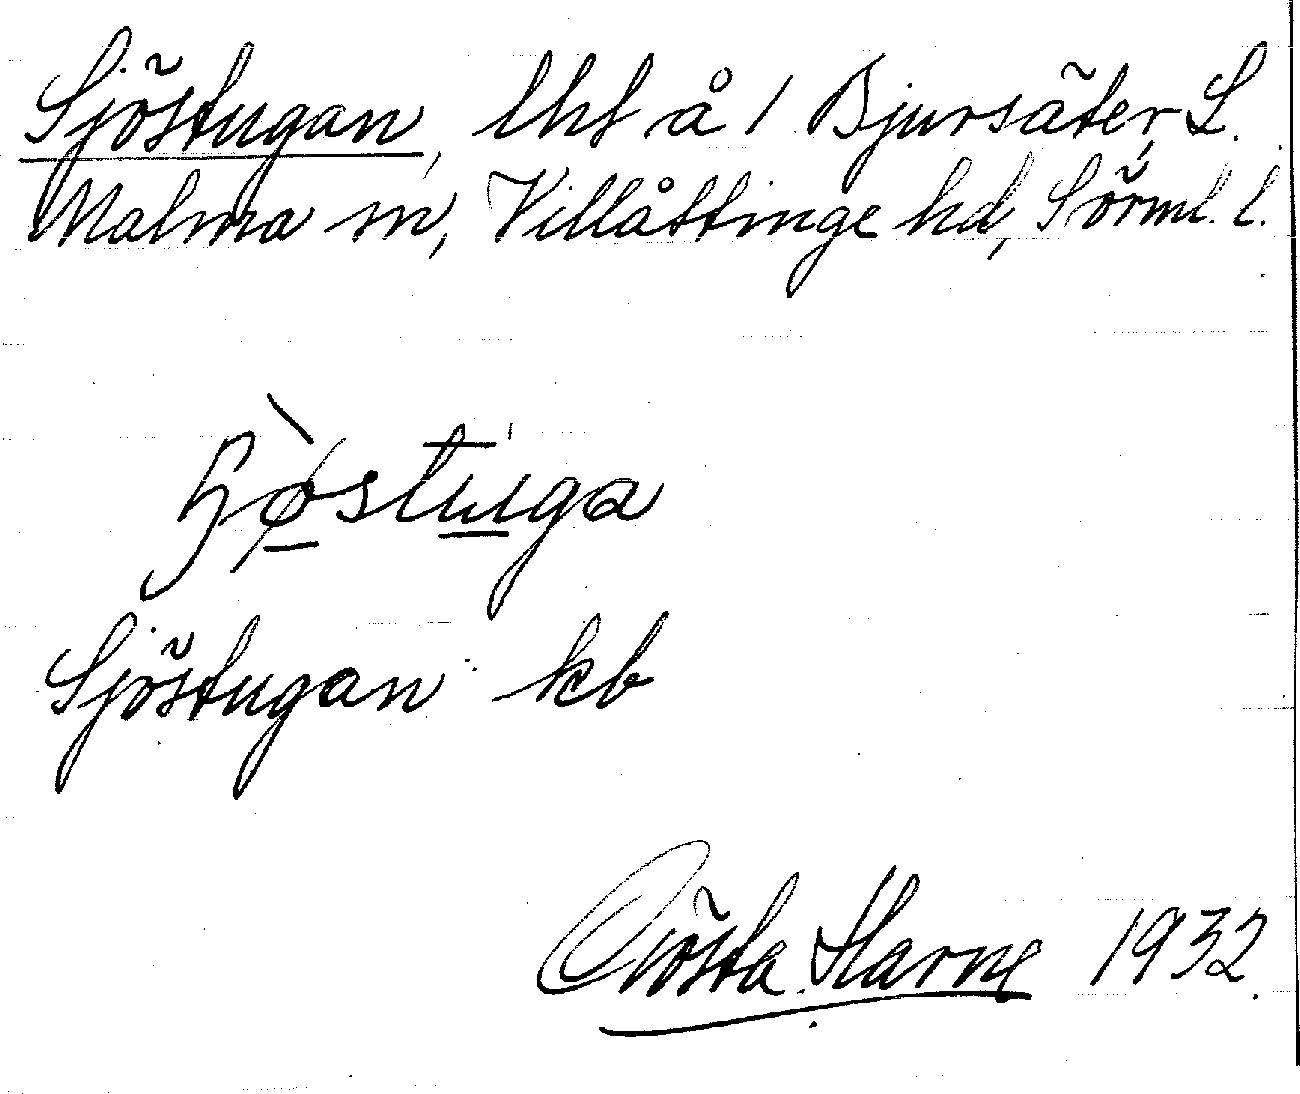 Sjöstugan, lht å 1 Bjursäter, L.
Malma sn, Villåttinge hd, Sörml. l.
Sjöstugan kb
Gösta Harne 1932